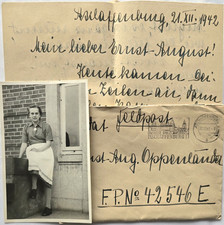 Aschaffenburg, 21.XII.1942
Mein lieber Ernst-August!
Heute kamen bei
Zeilen an, dann
Feldpost
st-Aug. Oppenländer
F.P. No 42546 E